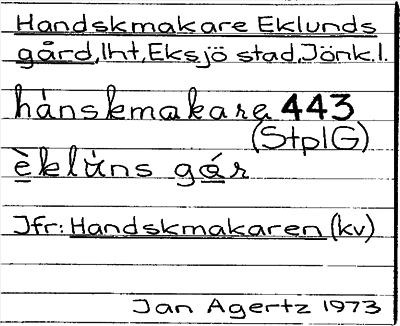 Handskmakare Eklunds
gård, lht, Eksjö stad, Jönk.l.
hànskmakara 443
(StplG)
èklúns gár
Jfr: Handskmakaren (kv)
Jan Agertz 1973